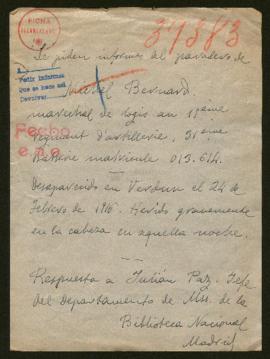 FICHA
37383
Se piden informes del paradero de
Pedir informes
Que se hace así
Devolver
Bernard
marechal de logis au 11 eme
regiment d'artillerie, 31 eme
Batterie matricule 013.614.
Fecho
Desaparecido en Verdun el 24 de
Febrero de 1916. Herido gravemente
en la cabeza en aquella noche.
Respuesta a Julián Paz. Jefe
del Departamento de Mss. de la
Biblioteca Nacional
Madrid